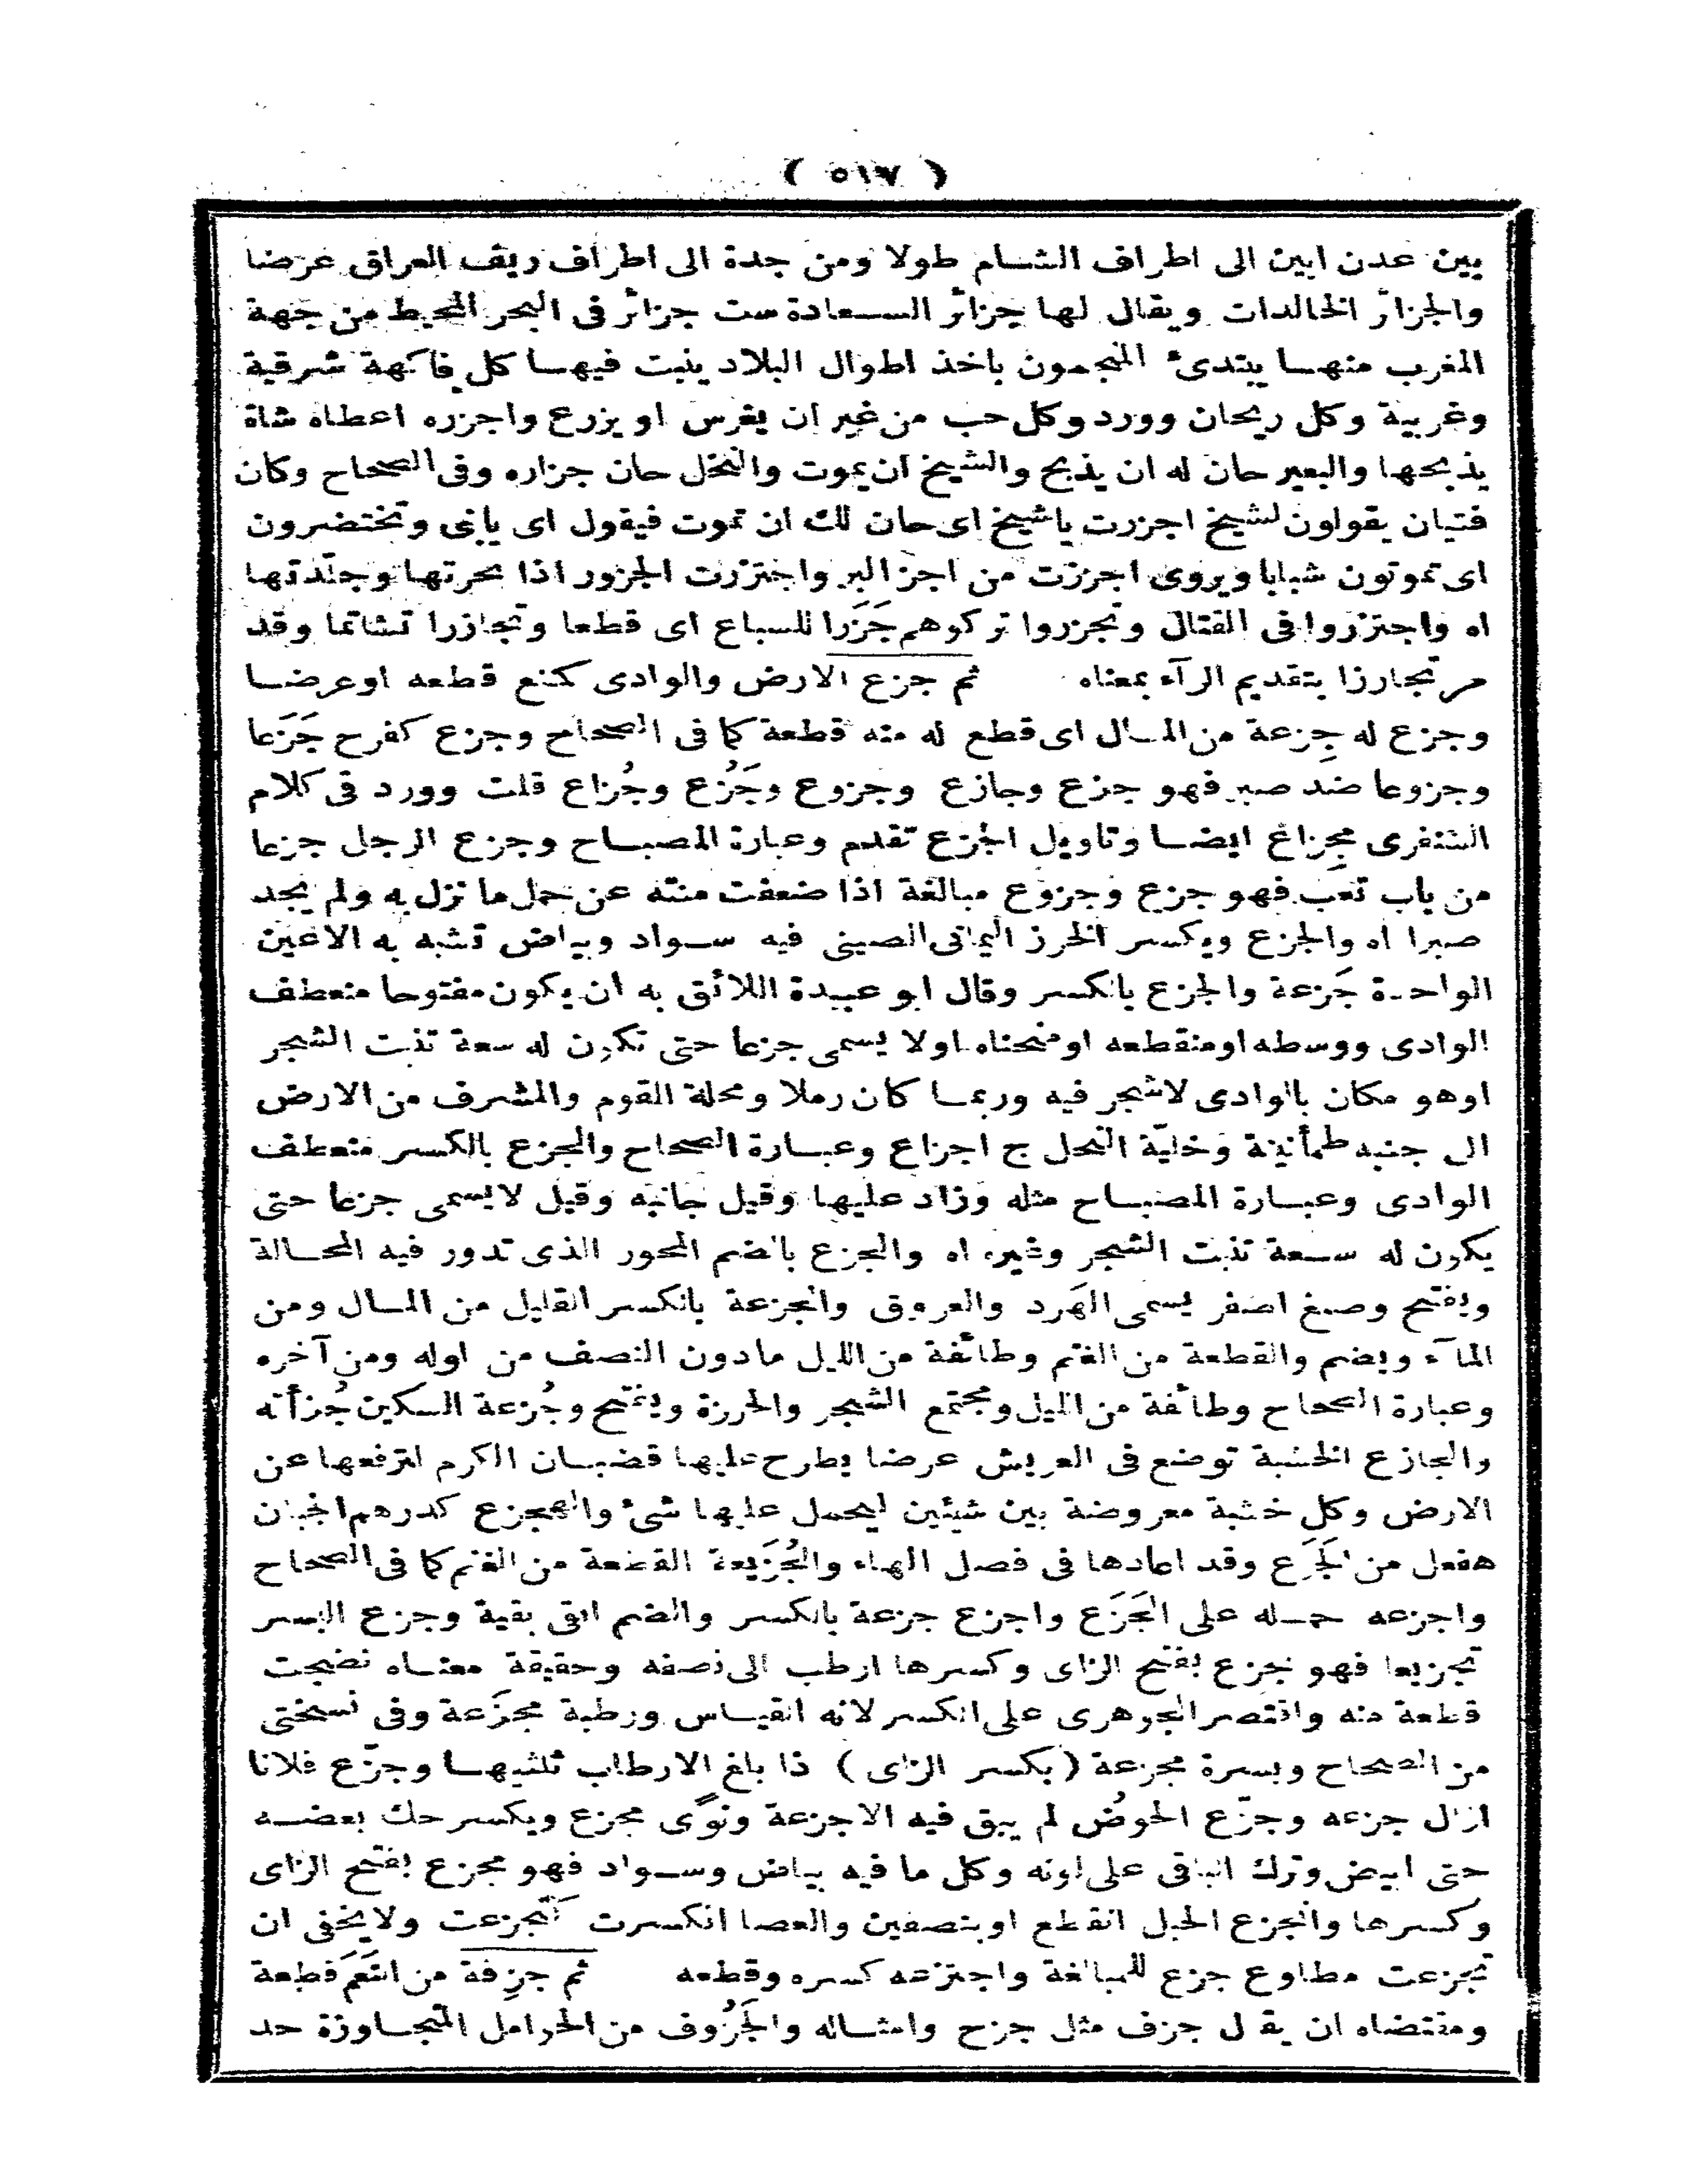 ( ٥١٧ )
بين عدن ابين الى اطراف الشام طولا ومن جدة الى اطراف ريف العراق عرضا
والجزائر الخالدات ويقال لها جزائر السعادة ست جزائر فى البحر المحيط من جهة
المغرب منها يبتدئ المنجمون باخذ اطوال البلاد ينبت فيها كل فاكهة شرقية
وغربية وكل ريحان وورد وكل حب من غير ان يغرس او يزرع واجزره اعطاه شاة
يذبحها والبعير حان له ان يذبح والشيخ ان يموت والنخل حان جزاره وفى الصحاح وكان
فتيان يقولون لشيخ اجزرت ياشيخ اى حان لك ان تموت فيقول اى يابنى وتختضرون
اى تموتون شبابا ويروى اجززت من اجز البر واجتزرت الجزور اذا نحرتها وجلّدتها
اه واجتزروا فى القتال وتجزروا تركوهم جَزَرا للسباع اى قطعا وتجازرا تشاتما وقد
مر تجارزا بتقديم الرآء بمعناه ثم جزع الارض والوادى كمنع قطعه او عرضا
وجزع له جِزعة من المال اى قطع له منه قطعة كما فى الصحاح وجزع كفرح جَزَعا
وجزوعا ضد صبر فهو جزع وجازع وجزوع وجَزُع وجُزاع قلت وورد فى كلام
الشنفرى مِجزاع ايضا وتاويل الجزع تقدم وعبارة المصباح وجزع الرجل جزعا
من باب تعب فهو جزع وجزوع مبالغة اذا ضعفت منته عن حمل ما نزل به ولم يجد
صبرا اه والجزع ويكسر الخرز اليمانى الصينى فيه سواد وبياض تشبه به الاعين
الواحدة جَزعة والجزع بالكسر وقال ابو عبيدة اللائق به ان يكون مفتوحا منعطف
الوادى ووسطه او منقطعه او منحناه او لا يسمى جزعا حتى تكون له سعة تنبت الشجر
او هو مكان بالوادى لاشجر فيه وربما كان رملا ومحلة القوم والمشرف من الارض
الى جنبه طمأنينة وخليّة النحل ج اجزاع وعبارة الصحاح والجزع بالكسر منعطف
الوادى وعبارة المصباح مثله وزاد عليها وقيل جانبه وقيل لايسمى جزعا حتى
يكون له سعة تنبت الشجر وغيره اه والجزع بالضم المحور الذى تدور فيه المحالة
ويفتح وصبغ اصفر يسمى الهَرد والعروق والجزعة بالكسر القليل من المال ومن
المآء ويضم والقطعة من الغنم وطائفة من الليل مادون النصف من اوله ومن آخره
وعبارة الصحاح وطائفة من الليل ومجتمع الشجر والخرزة ويفتح وجُزعة السكين جُزأته
والجازع الخشبة توضع فى العريش عرضا يطرح عليها قضبان الكرم لترفعها عن
الارض وكل خشبة معروضة بين شيئين ليحمل عليها شئ والهجزع كدرهم الجبان
هفعل من الجَزَع وقد اعادها فى فصل الهاء والجُزَيعة القطعة من الغنم كما فى الصحاح
واجزعه حمله على الجَزَع واجزع جزعة بالكسر والضم ابقى بقية وجزع البسر
تجزيعا فهو مجزع بفتح الزاى وكسرها ارطب الى نصفه وحقيقة معناه نضجت
قطعة منه واقتصر الجوهرى على الكسر لانه القياس ورطبة مجزّعة وفى نسختى
من الصحاح وبسرة مجزعة (بكسر الزاى) اذا بلغ الارطاب ثلثيها وجزّع فلانا
ازال جزعه وجزّع الحوضُ لم يبق فيه الاجزعة ونوًى مجزع ويكسر حك بعضه
حتى ابيض وترك الباقى على لونه وكل ما فيه بياض وسواد فهو مجزع بفتح الزاى
وكسرها وانجزع الحبل انقطع او بنصفين والعصا انكسرت كتجزعت ولايخفى ان
تجزعت مطاوع جزع للمبالغة واجتزعه كسره وقطعه ثم جِزفة من النَعَم قطعة
ومقتضاه ان يقال جزف مثل جزح وامثاله والجَزُوف من الحوامل المتجاوزة حد